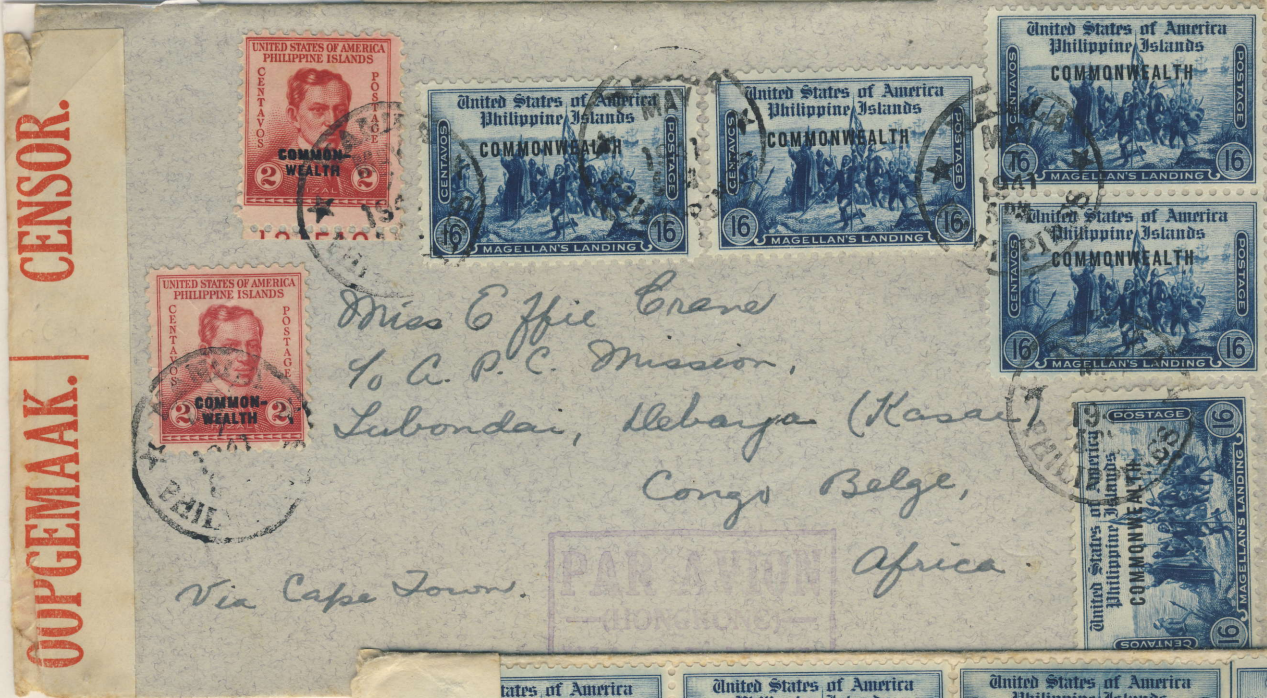 OOPGEMAAK. | CENSOR.
UNITED STATES OF AMERICA
PHILIPPINE ISLANDS
CENTAVOS
POSTAGE
COMMON-
WEALTH
2 RIZAL 2
United States of America
Philippine Islands
COMMONWEALTH
CENTAVOS
POSTAGE
16 16
MAGELLAN'S LANDING
MAY
United States of America
Philippine Islands
COMMONWEALTH
CENTAVOS
POSTAGE
16 16
MAGELLAN'S LANDING
United States of America
Philippine Islands
COMMONWEALTH
CENTAVOS
POSTAGE
16 16
MAGELLAN'S LANDING
1941
United States of America
Philippine Islands
COMMONWEALTH
CENTAVOS
POSTAGE
16 16
MAGELLAN'S LANDING
UNITED STATES OF AMERICA
PHILIPPINE ISLANDS
CENTAVOS
POSTAGE
COMMON-
WEALTH
2 2
PHIL
United States of America
Philippine Islands
COMMONWEALTH
CENTAVOS
POSTAGE
16 16
MAGELLAN'S LANDING
Miss Effie Crane
c/o A. P. C. Mission,
Lubondai, (Kasai)
Congo Belge,
Africa.
Via Cape Town.
PAR AVION
tates of America
United States of America
Philippine Islands
United States of America
Philippine Islands